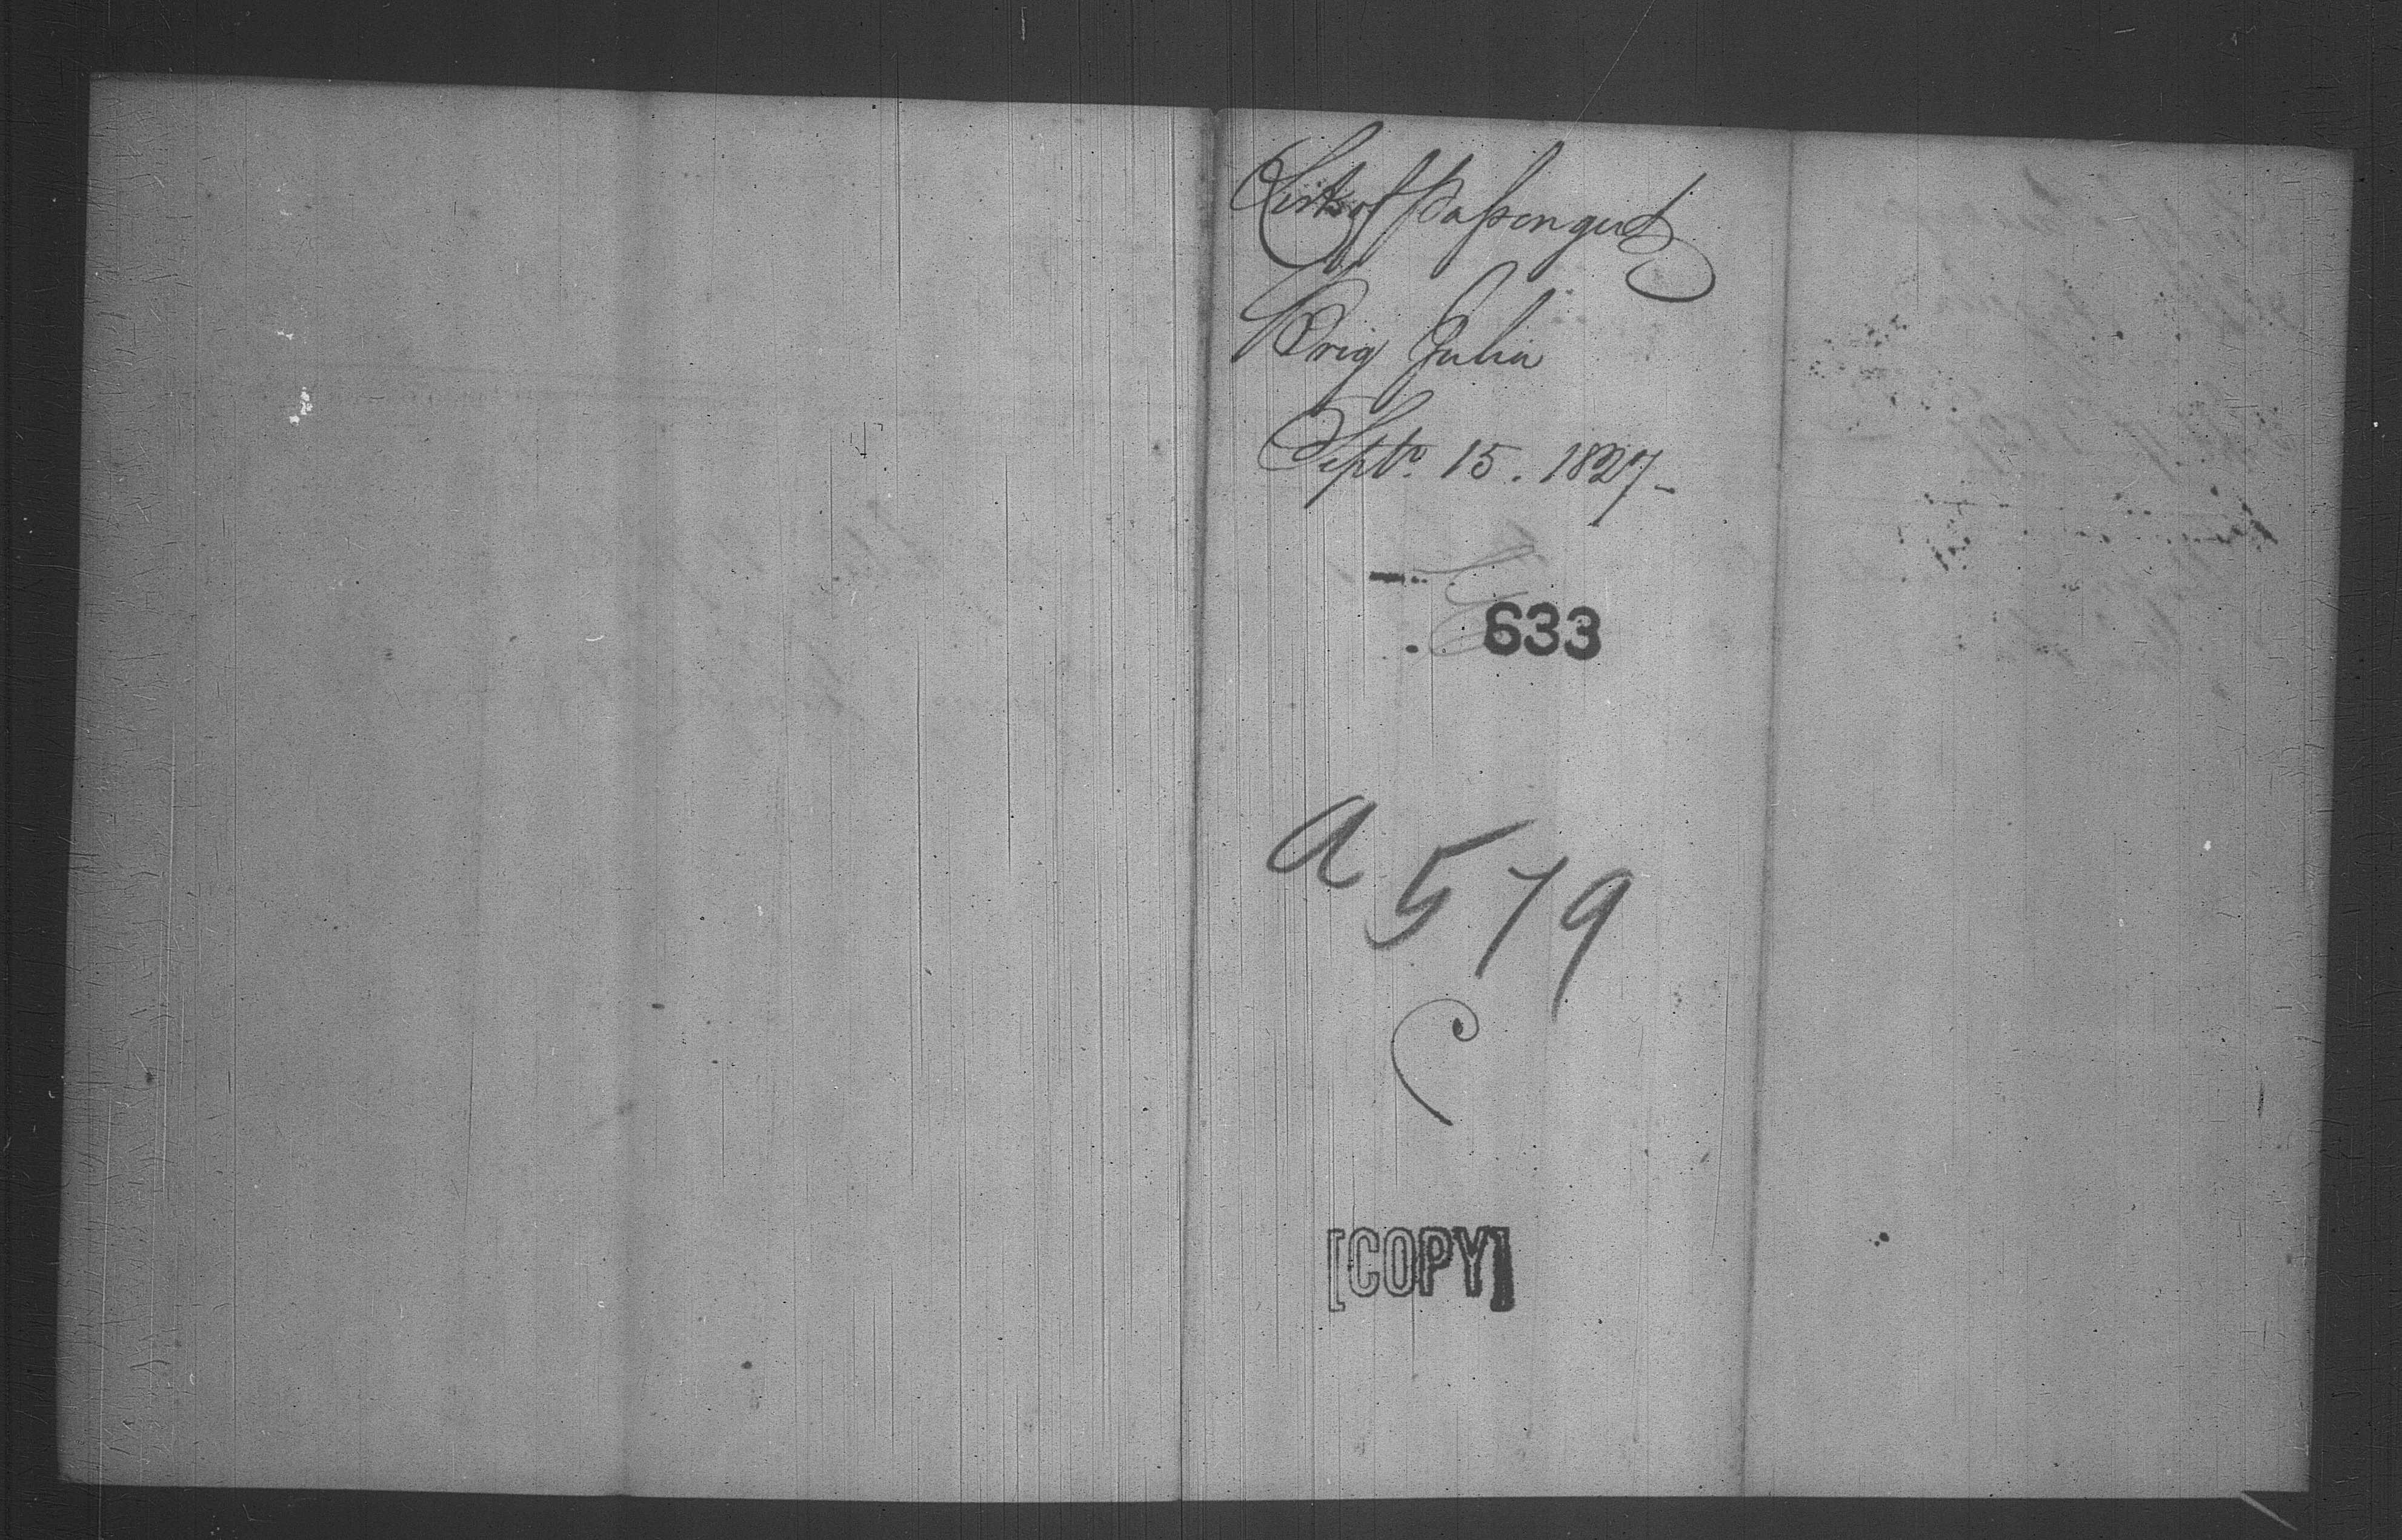 List of Passengers
Brig Julia
Septr. 15. 1827-
633
A 579
C
[COPY]